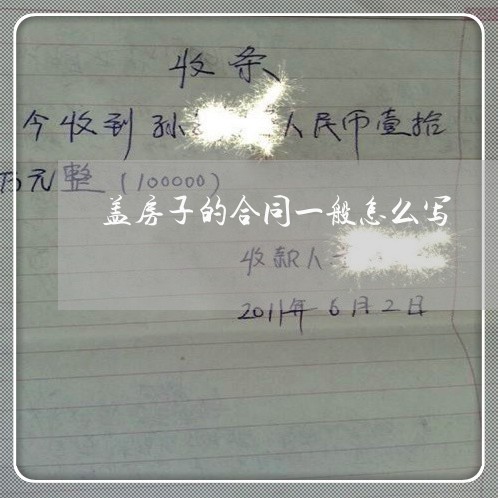 收条
今收到孙 人民币壹拾
万元整(100000)
盖房子的合同一般怎么写
收款人
2011年6月2日